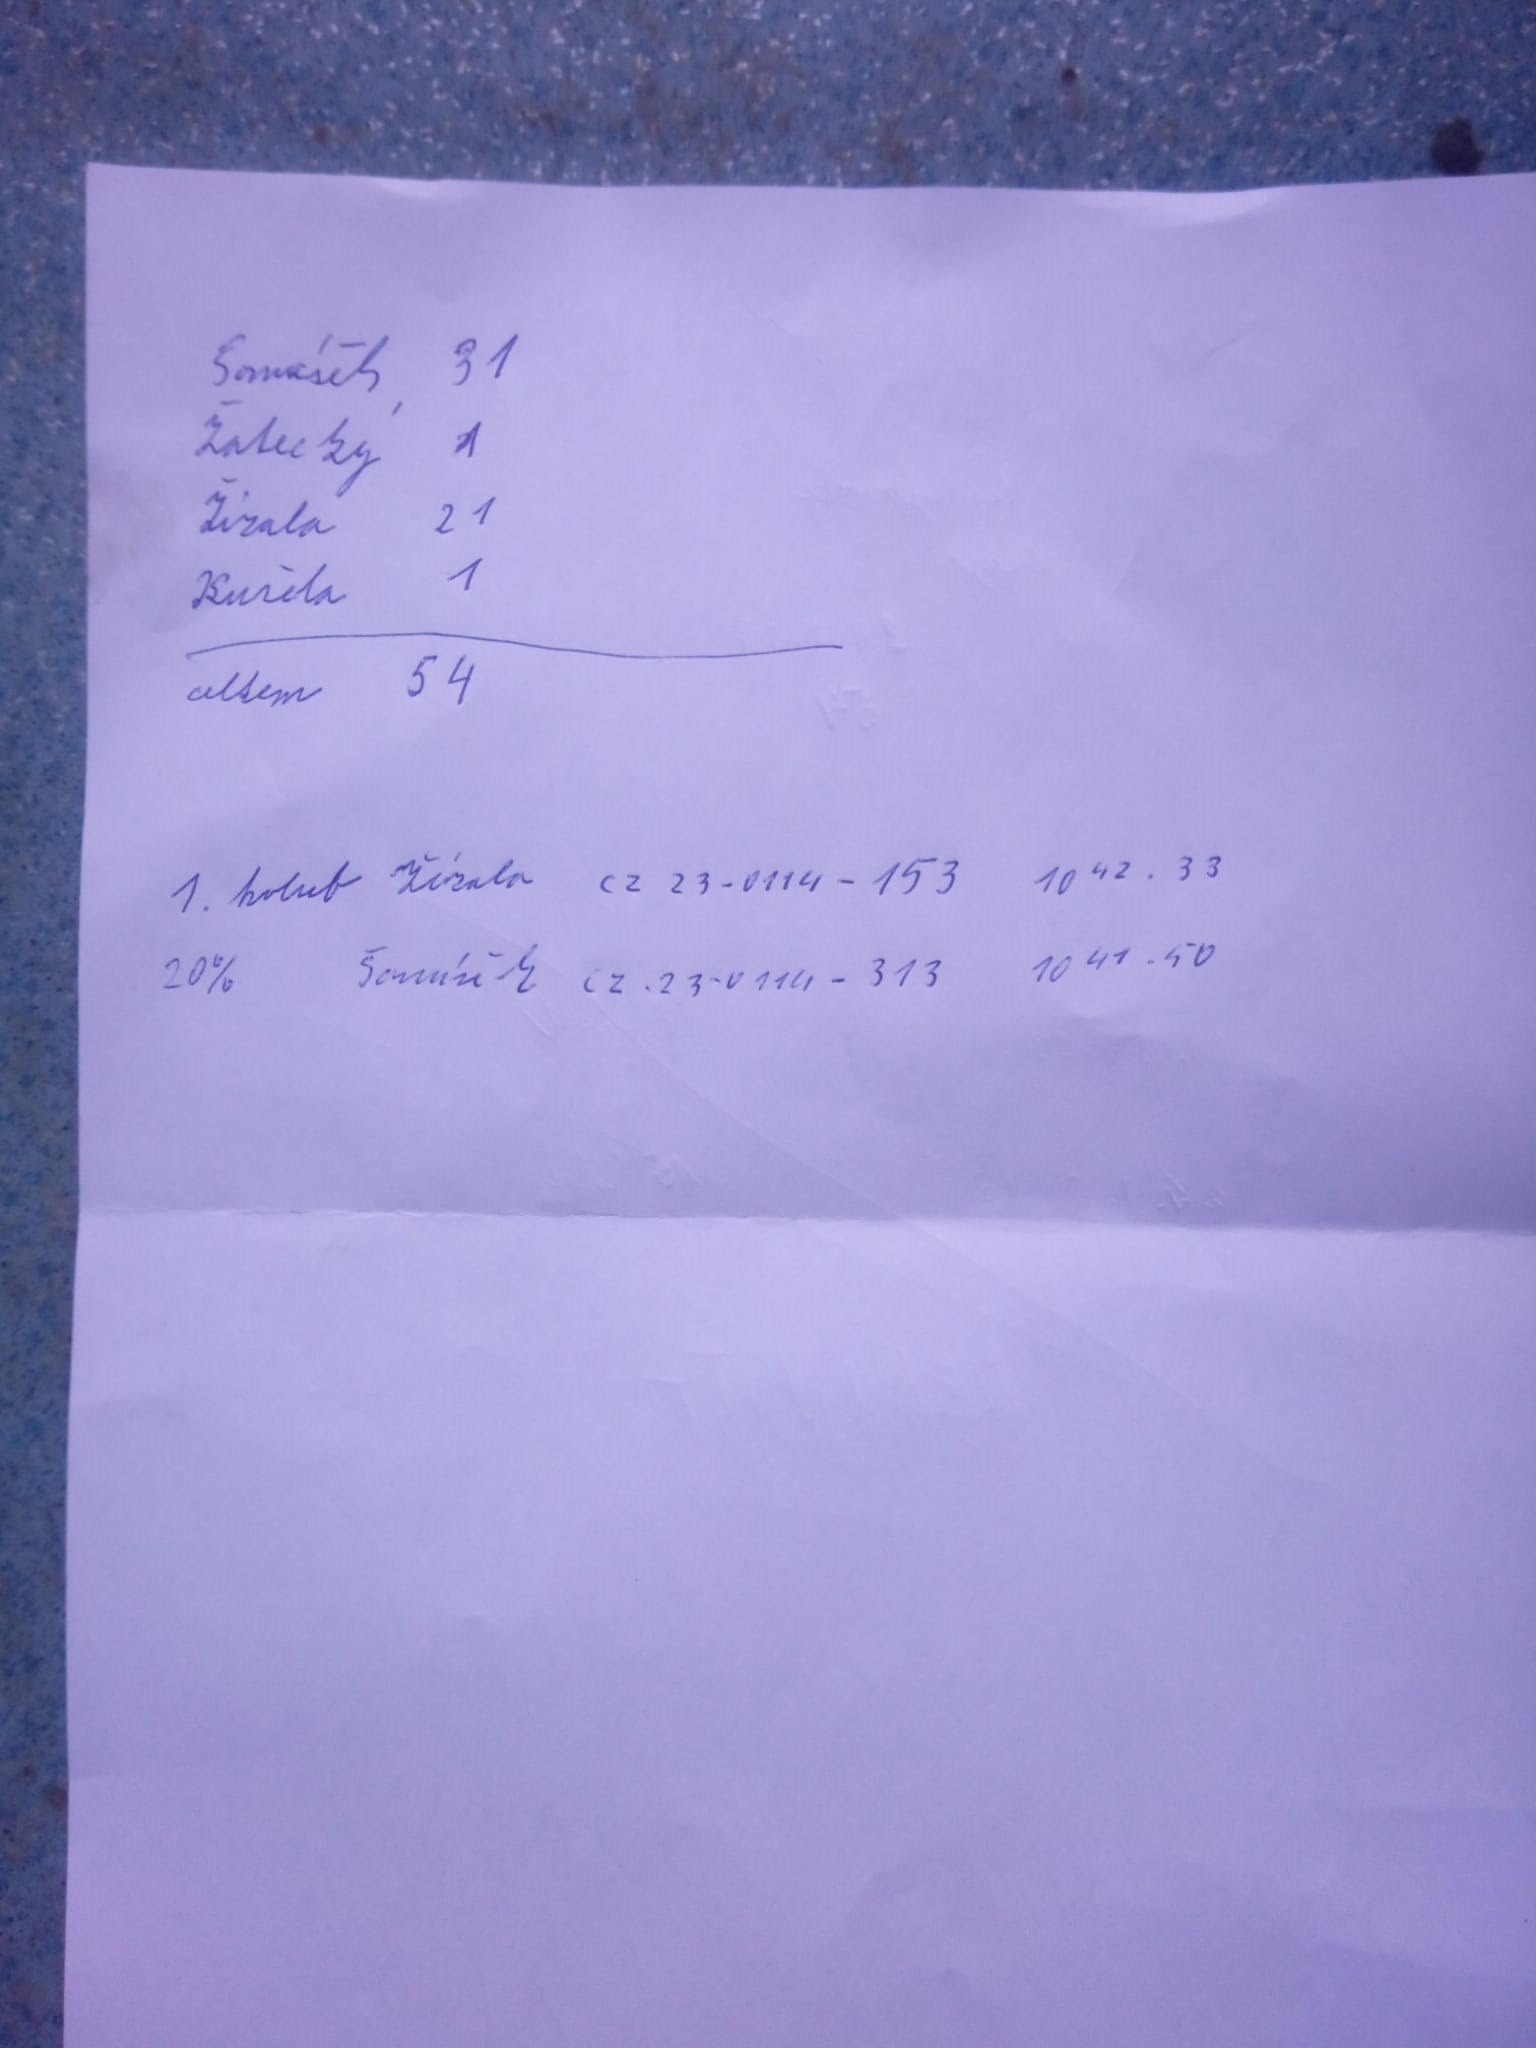 Somášek 31
Žatecký 1
Žižala 21
Kužela 1
celkem 54
1. holub Žižala cz 23-0114-153 10 42.33
20% Somášek cz.23-0114-313 10 41.50